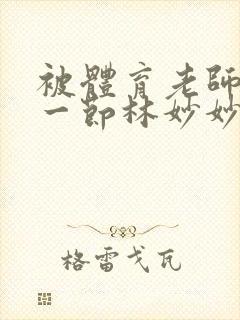 被體育老師
一節林妙妙
格雷戈瓦